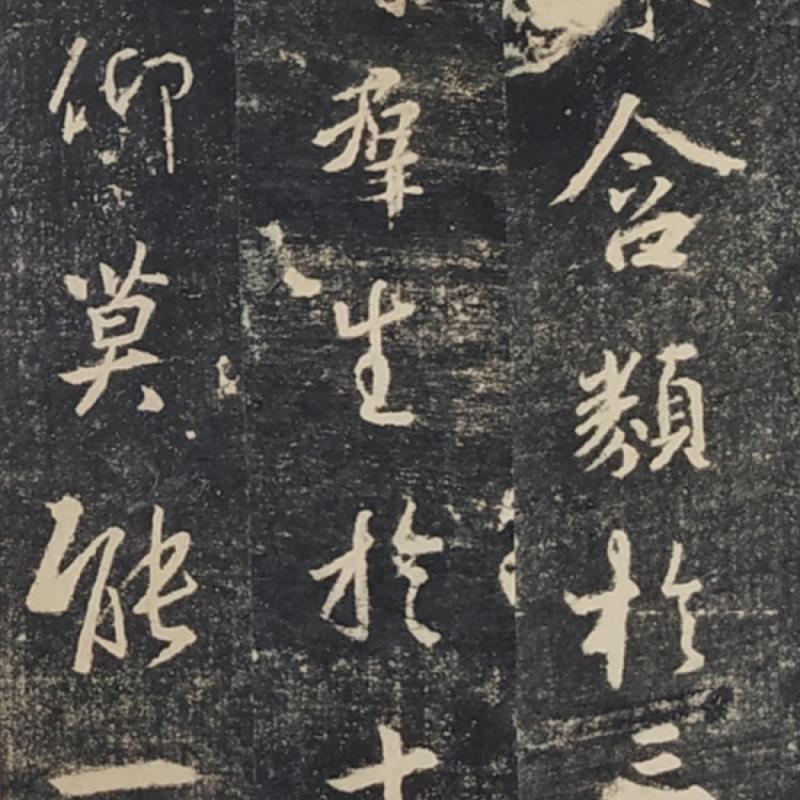 含類於三
羣生於十
仰莫能一